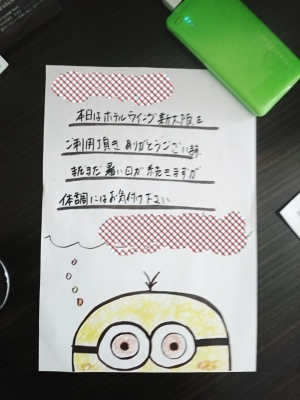 本日はホテルライジング新大阪を
ご利用頂き ありがとうございます
まだまだ 暑い日が続きますが
体調にはお気付け下さい